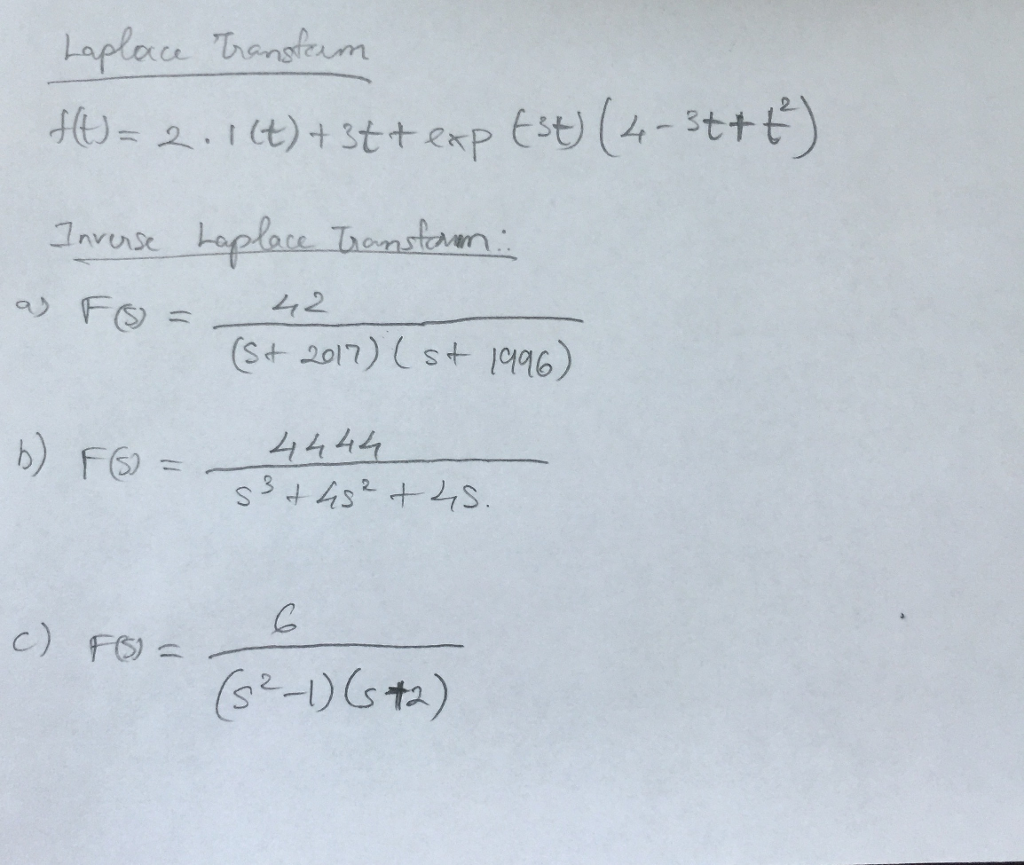 Laplace Transform
f(t) = 2 . 1(t) + 3t + exp (-3t) (4 - 3t + t²)
Inverse Laplace Transform :
a) F(s) = 42 / (s + 2017) (s + 1996)
b) F(s) = 4444 / s³ + 4s² + 4s.
c) F(s) = 6 / (s² - 1) (s + 2)